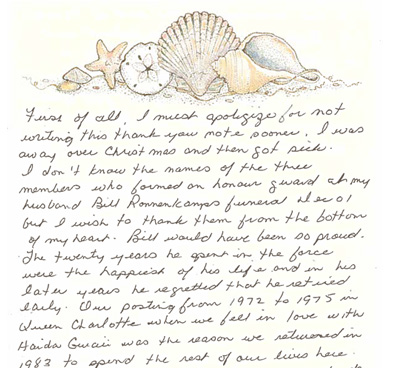 First of all, I must apologize for not
writing this thank you note sooner. I was
away over Christmas and then got sick.
I don't know the names of the three
members who formed an honour guard at my
husband Bill Ronnenkamps funeral Dec 01
but I wish to thank them from the bottom
of my heart. Bill would have been so proud.
The twenty years he spent in the force
were the happiest of his life and in his
later years he regretted that he retired
early. Our posting from 1972 to 1975 in
Queen Charlotte when we fell in love with
Haida Gwaii was the reason we returned in
1983 to spend the rest of our lives here.